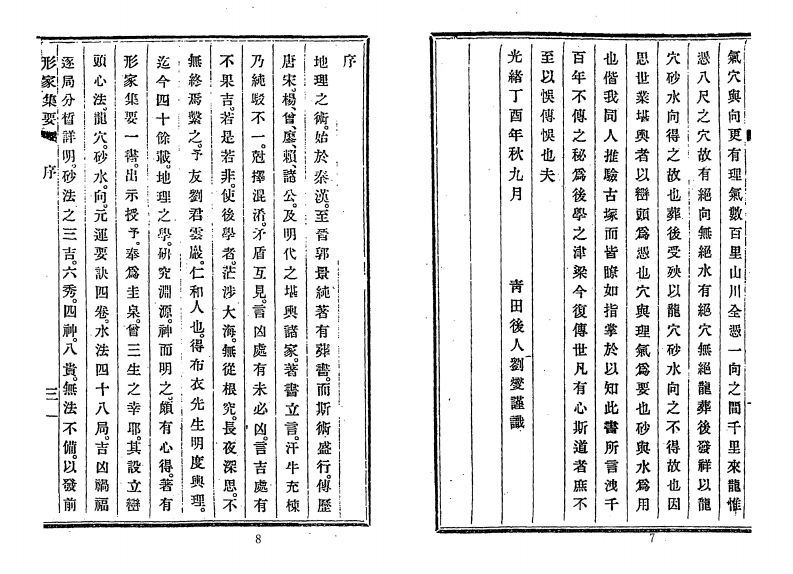 氣穴與向更有理氣數百里山川全憑一向之間千里來龍惟
憑八尺之穴故有絕向無絕水有絕穴無絕龍葬後發祥以龍
穴砂水向得之故也葬後受殃以龍穴砂水向之不得故也因
思世業堪輿者以巒頭為憑也穴與理氣為要也砂與水為用
也偕我同人推驗古塚而皆瞭如指掌於以知此書所言洩千
百年不傳之秘為後學之津梁今復傳世凡有心斯道者庶不
至以悞傳悞也夫
光緒丁酉年秋九月
青田後人劉燮謹識
7
序
地理之術。始於秦漢。至晉郭景純著有葬書。而斯術盛行。傳歷
唐宋。楊、曾、廖、賴、諸公。及明代之堪輿諸家。著書立言。汗牛充棟
乃純駁不一。尅擇混淆。矛盾互見。言凶處有未必凶。言吉處有
不果吉。若是若非。使後學者。茫涉大海。無從根究。長夜深思。不
無終焉繫之。予友劉君雲巖。仁和人也。得布衣先生明度輿理。
迄今四十餘載。地理之學。研究淵源。神而明之。頗有心得。著有
形家集要一書。出示授予。奉為圭臬。曾三生之幸耶。其設立巒
頭心法。龍穴。砂水。向。元運要訣四卷。水法四十八局。吉凶禍福
逐局分晳詳明。砂法之三吉。六秀。四神。八貴。無法不備。以發前
形家集要
序
三
8